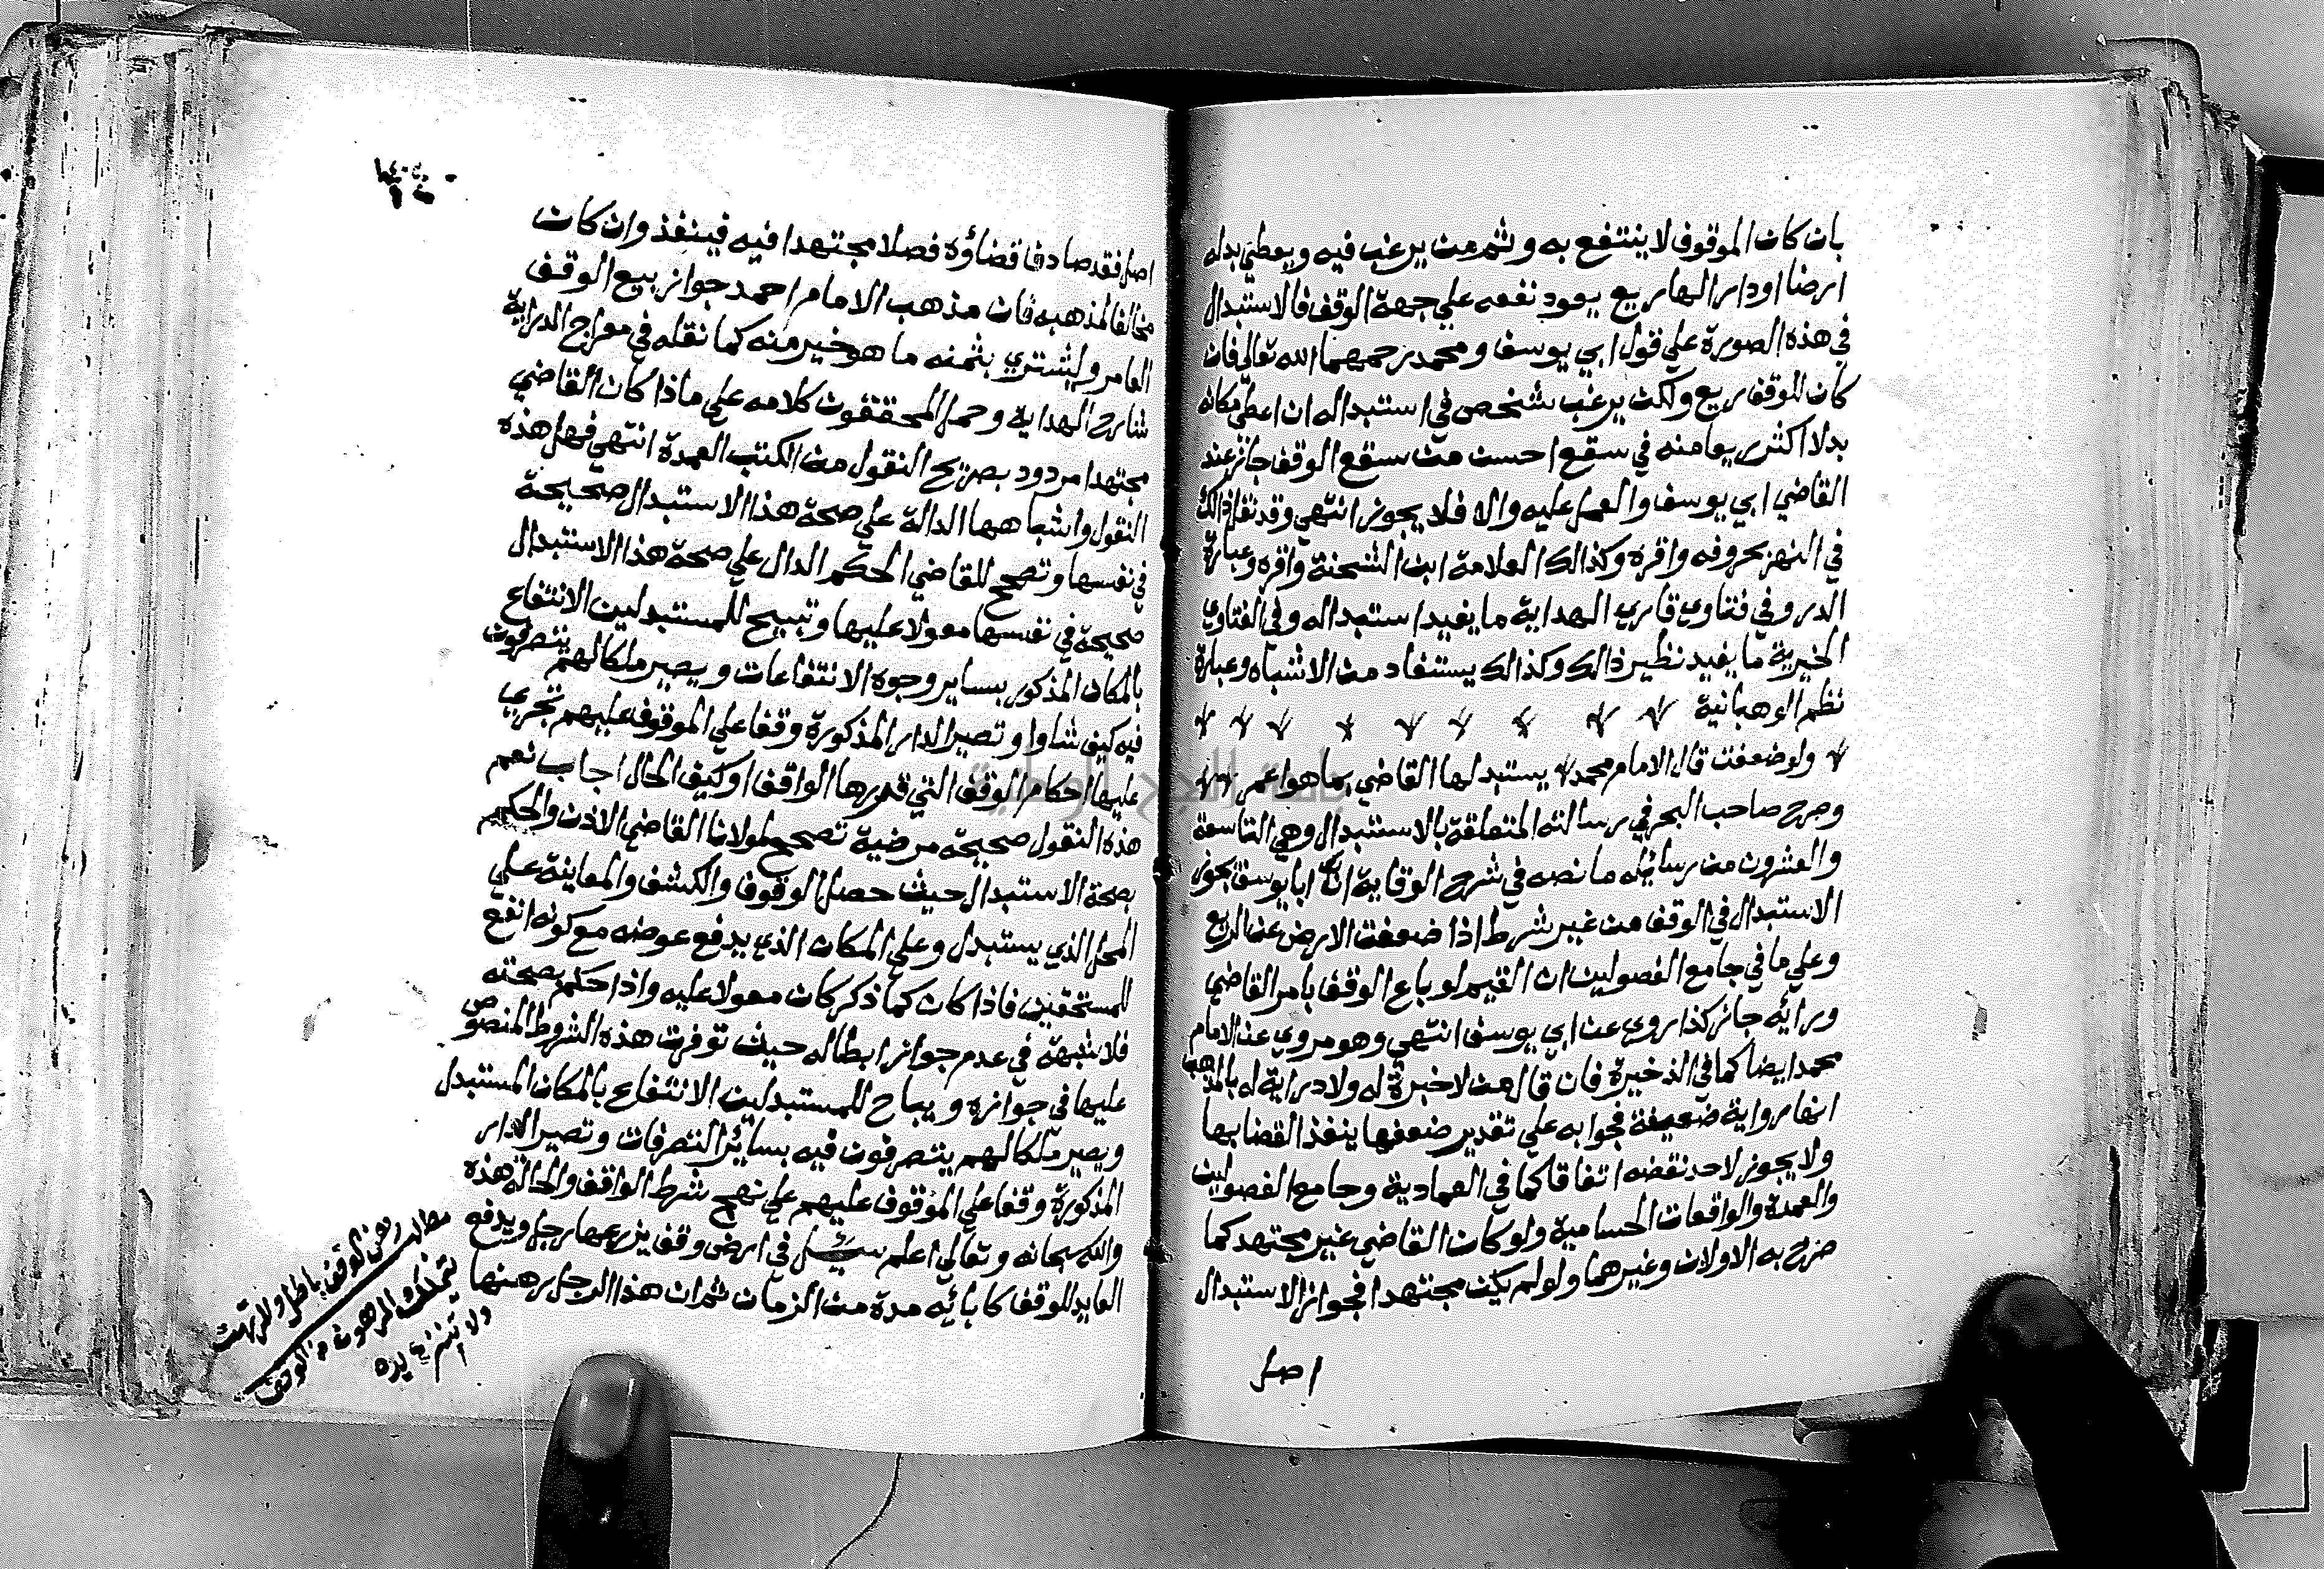 بان كان الموقوف لا ينتفع به وثم من يرغب فيه ويعطي بداه
ارضا او دارا لها ريع يعود نفعه علي جهة الوقف فالاستبدال
في هذه الصورة علي قول ابي يوسف ومحمد رحمهما الله تعالي فان
كان للوقف ريع ولكن يرغب شخص في استبداله ان اعطي مكانه
بدلا اكثر ريعا منه في سقع احسن من سقع الوقف جاز عند
القاضي ابي يوسف والعمل عليه والا فلا يجوز انتهي وقد نقل ذالك
في النهر بحروفه واقره وكذالك العلامة ابن الشحنة واقره وعبارة
الدر وفي فتاوي قاري الهداية ما يفيد استبداله وفي الفتاوي
الخيرية ما يفيد نظير ذالك وكذالك يستفاد من الاشباه وعبارة
نظم الوهبانية
ولو ضعفت قال الامام محمد يستبدلها القاضي بما هو اعمر
وصرح صاحب البحر في رسالته المتعلقة بالاستبدال وهي التاسعة
والعشرون من رسائله ما نصه في شرح الوقاية ان ابا يوسف يجوز
الاستبدال في الوقف من غير شرط اذا ضعفت الارض عن الريع
وعلي ما في جامع الفصولين ان القيم لو باع الوقف بامر القاضي
ورائه جاز كذا روي عن ابي يوسف انتهي وهو مروي عن الامام
محمد ايضا كما في الذخيرة فان قال من لا خبرة له ولا دراية له بالمذهب
انها رواية ضعيفة فجوابه علي تقدير ضعفها ينفذ القضا بها
ولا يجوز لاحد نقضه اتفاقا كما في العمادية وجامع الفصولين
والعمدة والواقعات الحسامية ولو كان القاضي غير مجتهد كما
صرح به الاولان وغيرهما ولو لم يكن مجتهدا فجواز الاستبدال
اصل
اصل فقد صادف قضاؤه فصلا مجتهدا فيه فينفذ وان كان
مخالفا لمذهبه فان مذهب الامام احمد جواز بيع الوقف
العامر وليشتري بثمنه ما هو خير منه كما نقله في معراج الدراية
شارح الهداية وحمل المحققون كلامه علي ما ذا كان القاضي
مجتهدا مردود بصريح النقول من الكتب العمدة انتهي فهل هذه
النقول واشباهها الدالة علي صحة هذا الاستبدال صحيحة
في نفسها وتصحح للقاضي الحكم الدال علي صحة هذا الاستبدال
صحيحة في نفسها معولا عليها وتبيح للمستبدلين الانتفاع
بالمكان المذكور بساير وجوه الانتفاعات ويصير ملكا لهم يتصرفون
فيه كيف شاوا وتصير الدار المذكورة وقفا علي الموقوف عليهم تجري
عليها احكام الوقف التي قررها الواقف او كيف الحال اجاب نعم
هذه النقول صحيحة مرضية تصحح لمولانا القاضي الاذن والحكم
بصحة الاستبدال حيث حصل الوقوف والكشف والمعاينة علي
المحل الذي يستبدل وعلي المكان الذي يدفع عوضه مع كونه انفع
للمستحقين فاذا كان كما ذكر كان معولا عليه واذا حكم بصحته
فلا شبهة في عدم جواز ابطاله حيث توفرت هذه الشروط المنصوص
عليها في جوازه ويباح للمستبدلين الانتفاع بالمكان المستبدل
ويصير ملكا لهم يتصرفون فيه بسائر التصرفات وتصير الدار
المذكورة وقفا علي الموقوف عليهم علي نهج شرط الواقف والحالة هذه
والله سبحانه وتعالي اعلم سئل في ارض وقف يزرعها رجل ويدفع
العايد للوقف كابائه مدة من الزمان ثم ان هذا الرجل رهنها
مطلب رهن الوقف باطل وللمرتهن
ولا تنزع يده